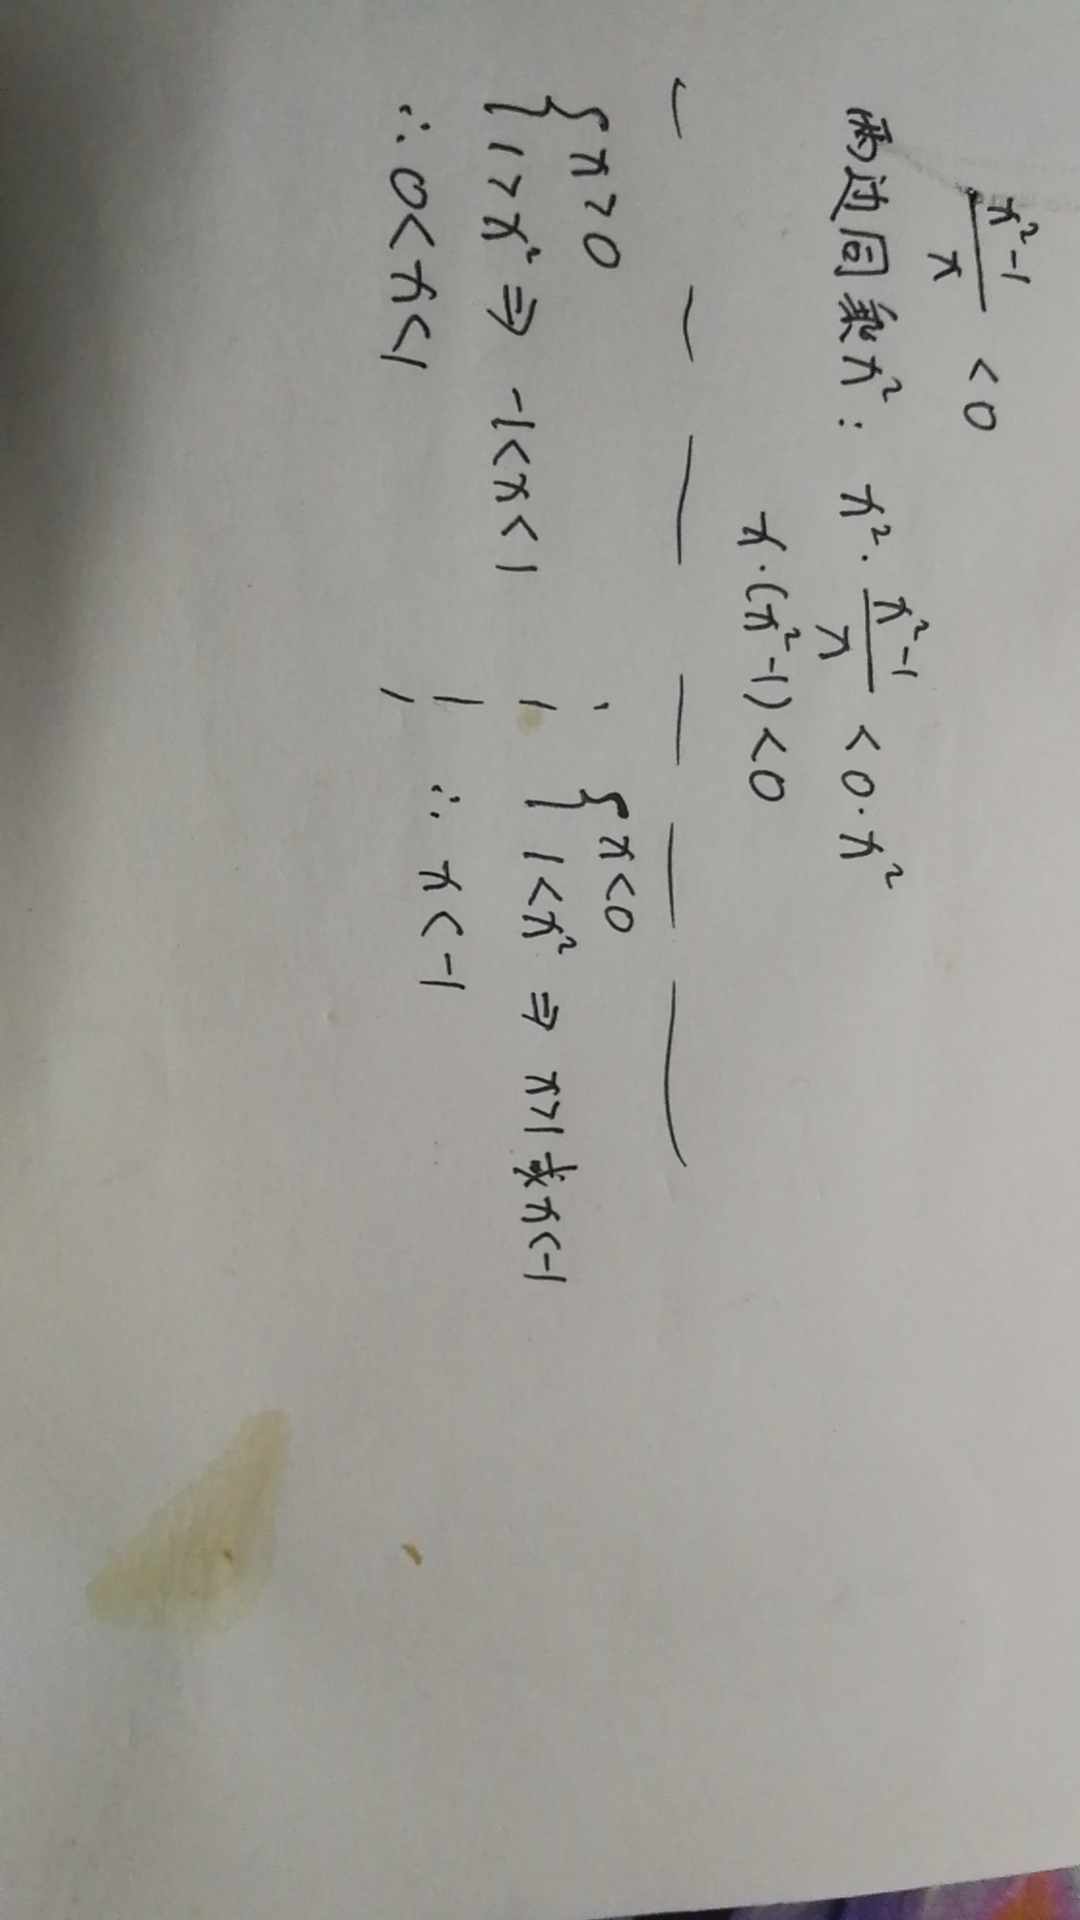 x²-1/x < 0
两边同乘x²: x²·x²-1/x < 0·x²
x·(x²-1)<0
{x>0
1>x² ⇒ -1<x<1
∴ 0<x<1
{x<0
1<x² ⇒ x>1或x<-1
∴ x<-1